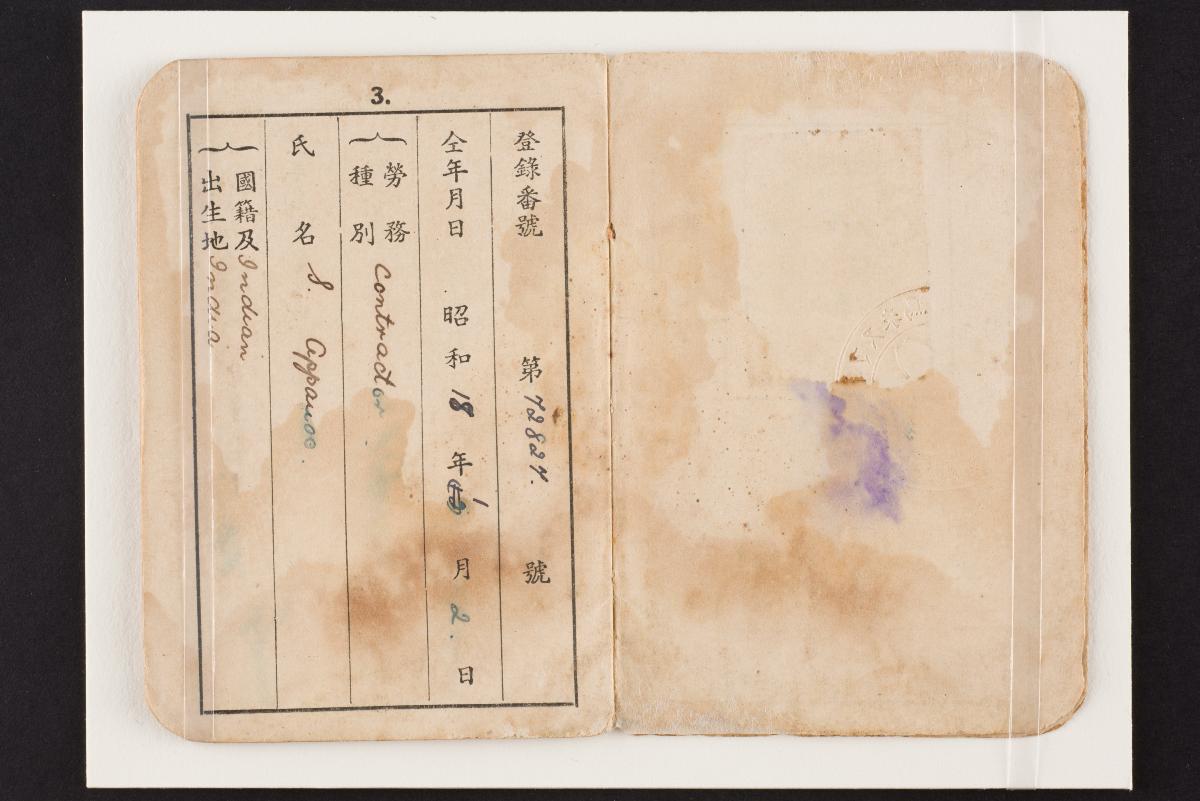 3.
登錄番號 第72827.號
仝年月日 昭和18年 月2.日
勞務
種別 Contractor
氏名 S. Appavoo.
國籍及 Indian
出生地 India